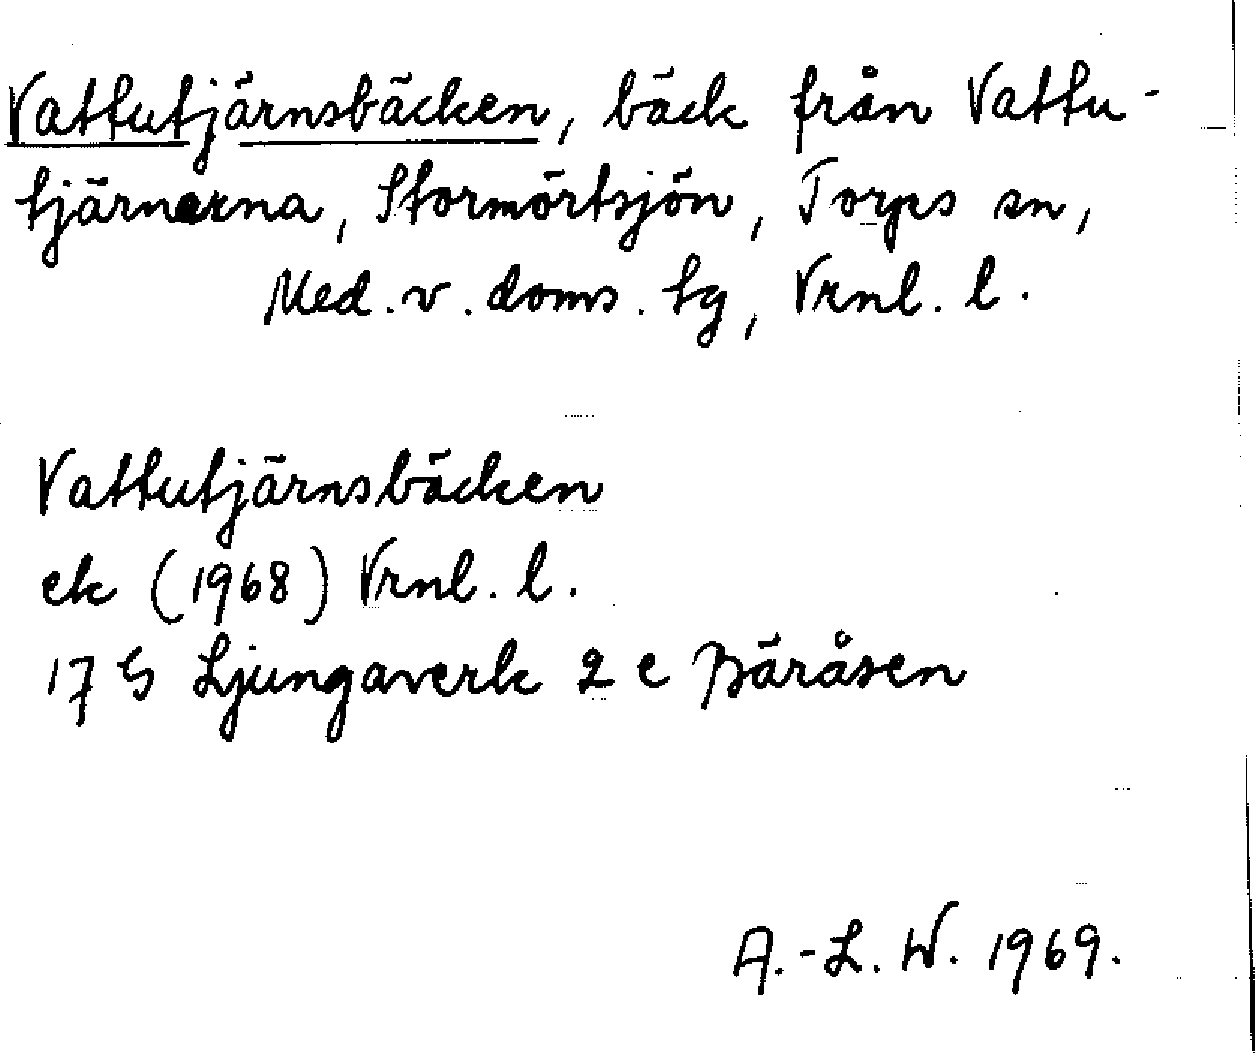 Vattutjärnsbäcken, bäck från Vattu-
tjärnarna, Stormörtsjön, Torps sn,
Med. v. doms. tg, Vrnl. l.
Vattutjärnsbäcken
ek (1968) Vrnl. l.
17 G Ljungaverk 2 c Bäråsen
A.-L. W. 1969.